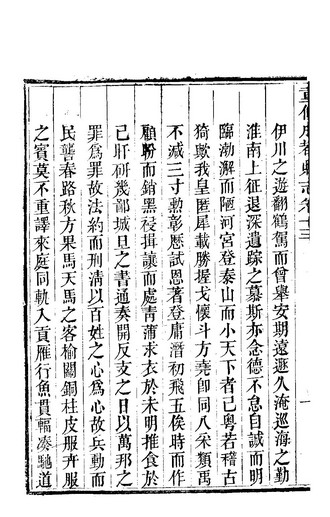 重修成都縣志卷十三
伊川之遊翻鶴駕而曾舉安期遠遯久淹巡海之勤
淮南上征退深遺蹤之慕斯亦念德不怠自誠而明
臨渤澥而陋河宮登泰山而小天下者已粵若稽古
猗歟我皇匿犀載勝握戈懷斗方堯即同八采類禹
不減三寸勲彰歷試恩著登庸潛初飛五俟時而作
顧盼而銷黑祲揖讓而處青蒲求衣於未明推食於
已旰研幾鄙城旦之書通奏開反支之日以萬邦之
罪為罪故法約而刑清以百姓之心為心故兵動而
民讋春路秋方果馬天馬之客榆關銅柱皮服卉服
之賓莫不重譯來庭同軌入貢雁行魚貫輻凑馳道
一